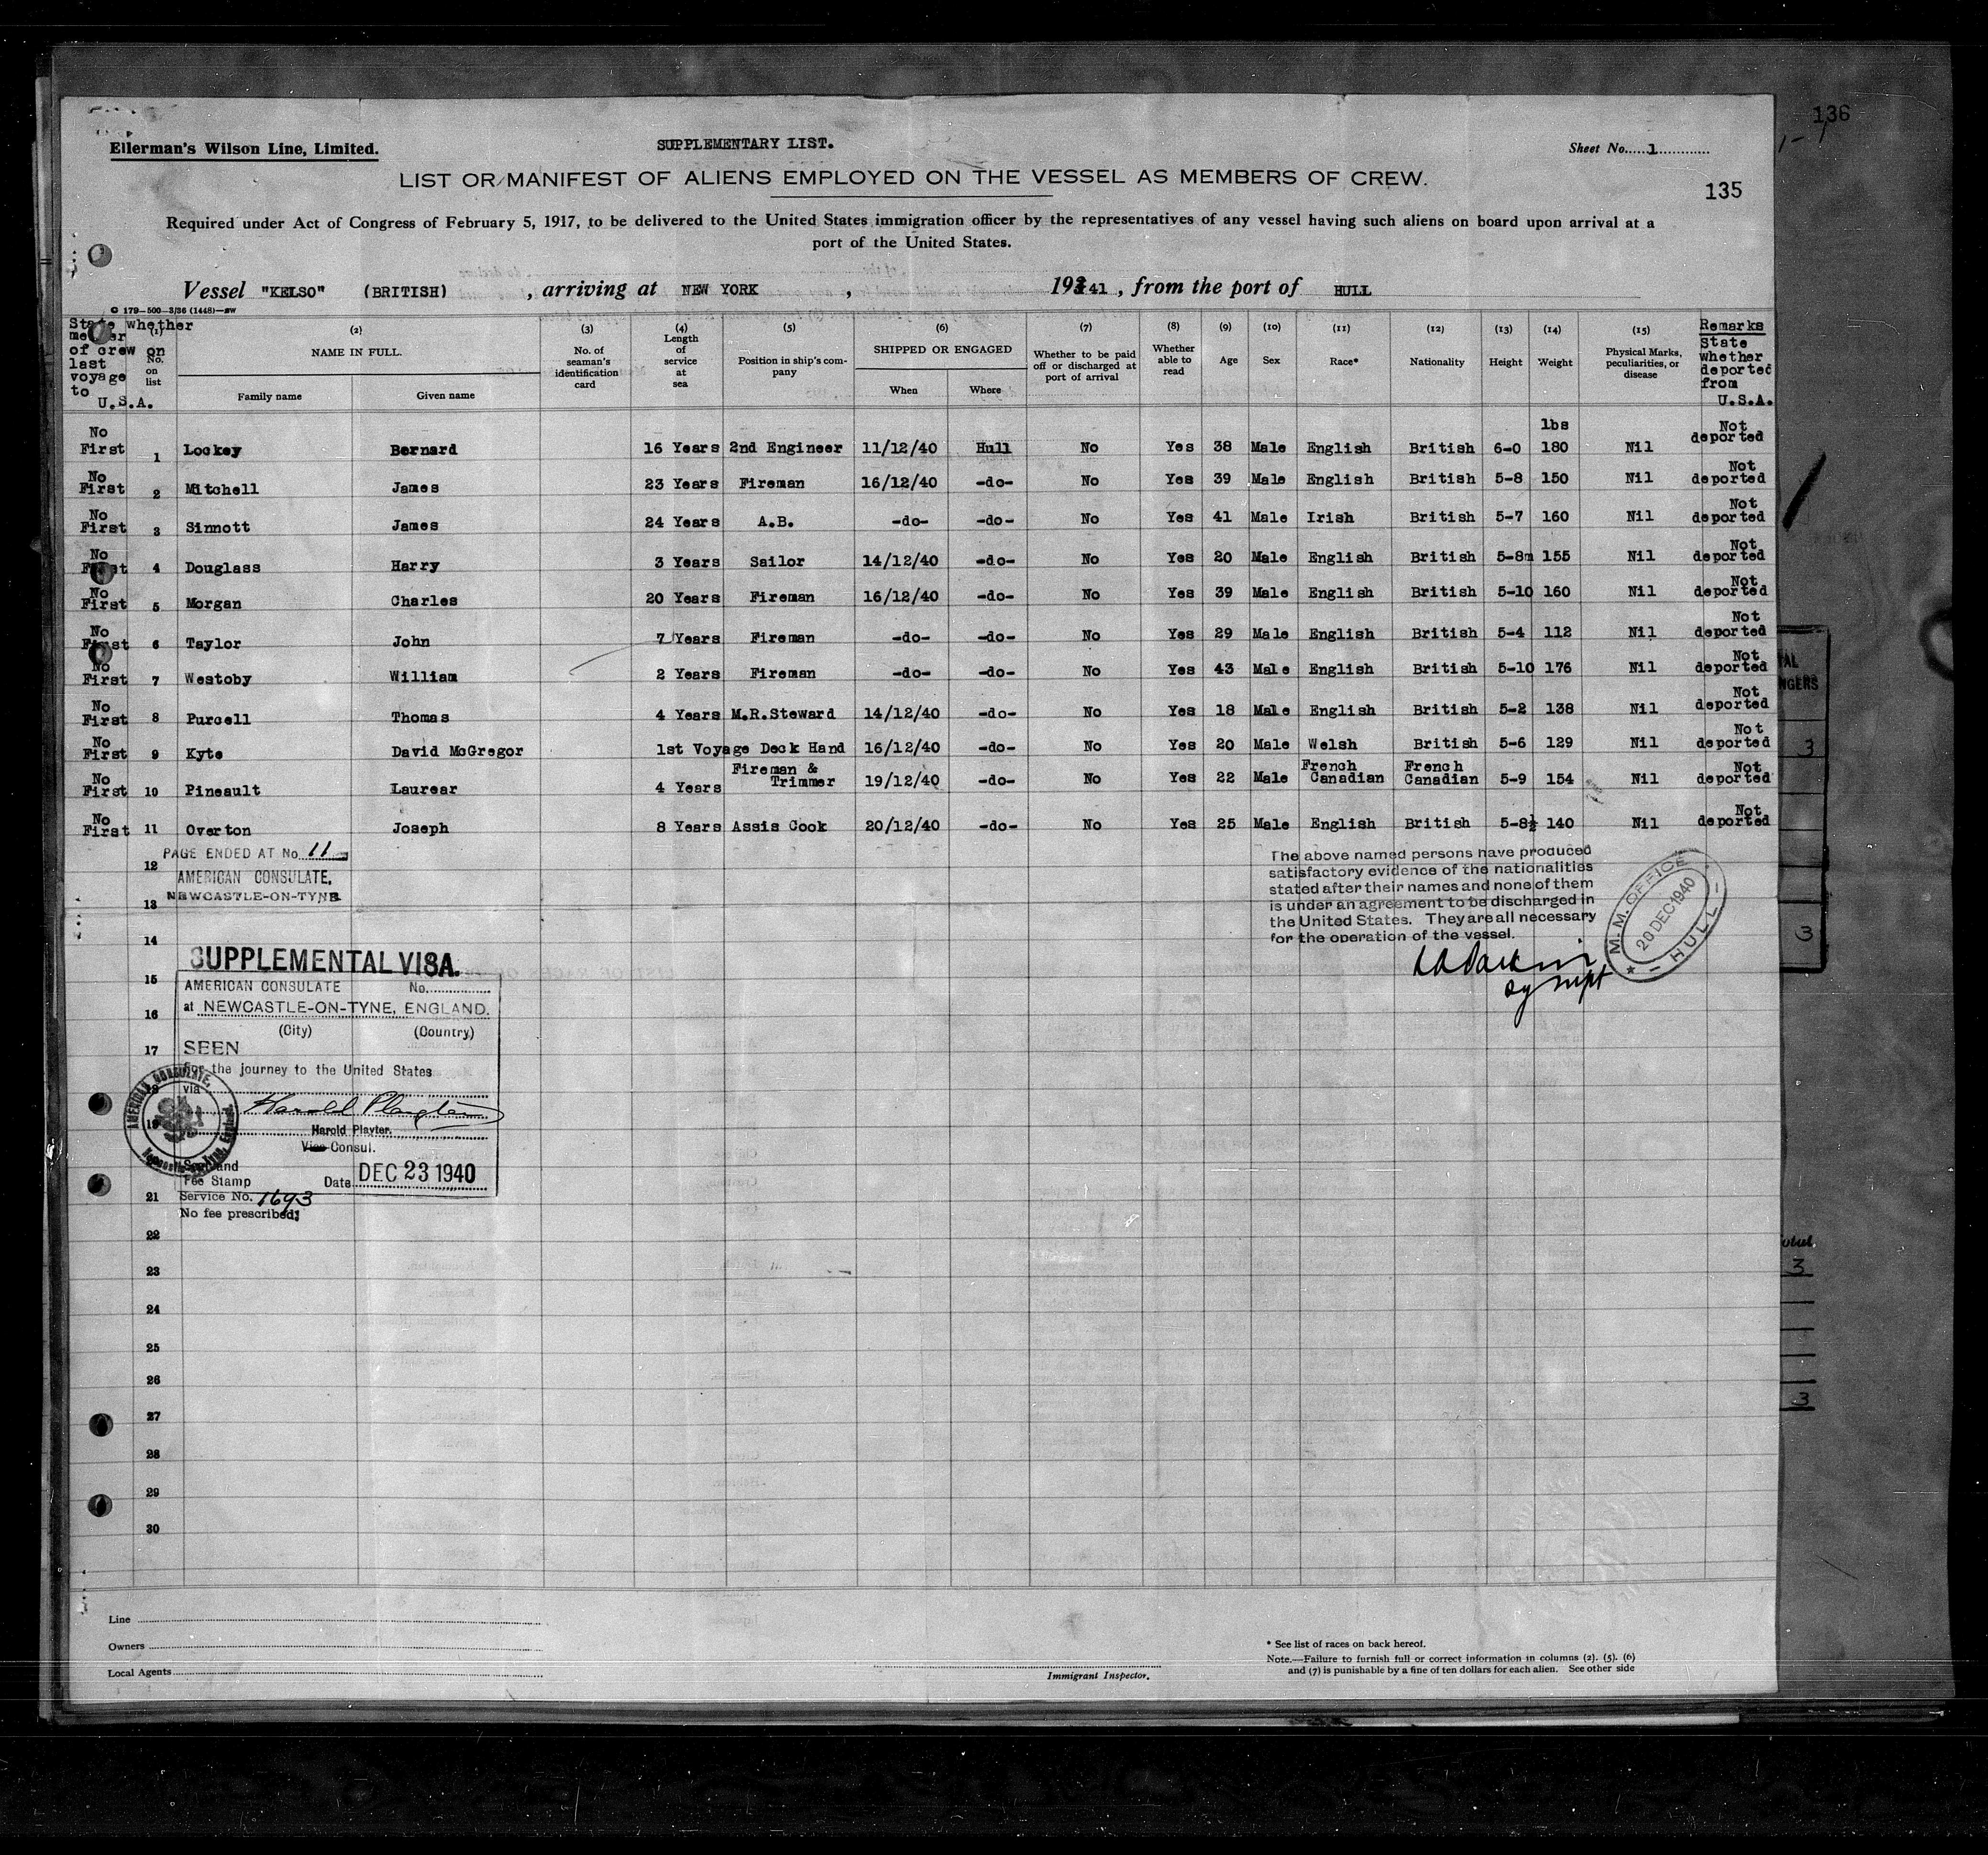 136
Ellerman's Wilson Line, Limited.
SUPPLEMENTARY LIST.
Sheet No. 1
LIST OR MANIFEST OF ALIENS EMPLOYED ON THE VESSEL AS MEMBERS OF CREW.
135
Required under Act of Congress of February 5, 1917, to be delivered to the United States immigration officer by the representatives of any vessel having such aliens on board upon arrival at a
port of the United States.
Vessel "KELSO" (BRITISH), arriving at NEW YORK, 1941, from the port of HULL
C 179-500-3/36 (1448)
State whether member of crew on last voyage to U.S.A.
(1) No. on list
(2) NAME IN FULL. Family name Given name
(3) No. of seaman's identification card
(4) Length of service at sea
(5) Position in ship's company
(6) SHIPPED OR ENGAGED When Where
(7) Whether to be paid off or discharged at port of arrival
(8) Whether able to read
(9) Age
(10) Sex
(11) Race*
(12) Nationality
(13) Height
(14) Weight
(15) Physical Marks, peculiarities, or disease
Remarks State whether deported from U.S.A.
lbs
No First 1 Lockey Bernard 16 Years 2nd Engineer 11/12/40 Hull No Yes 38 Male English British 6-0 180 Nil Not deported
No First 2 Mitchell James 23 Years Fireman 16/12/40 -do- No Yes 39 Male English British 5-8 150 Nil Not deported
No First 3 Sinnott James 24 Years A.B. -do- -do- No Yes 41 Male Irish British 5-7 160 Nil Not deported
No First 4 Douglass Harry 3 Years Sailor 14/12/40 -do- No Yes 20 Male English British 5-8 155 Nil Not deported
No First 5 Morgan Charles 20 Years Fireman 16/12/40 -do- No Yes 39 Male English British 5-10 160 Nil Not deported
No First 6 Taylor John 7 Years Fireman -do- -do- No Yes 29 Male English British 5-4 112 Nil Not deported
No First 7 Westoby William 2 Years Fireman -do- -do- No Yes 43 Male English British 5-10 176 Nil Not deported
No First 8 Purcell Thomas 4 Years M.R.Steward 14/12/40 -do- No Yes 18 Male English British 5-2 138 Nil Not deported
No First 9 Kyte David McGregor 1st Voyage Deck Hand 16/12/40 -do- No Yes 20 Male Welsh British 5-6 129 Nil Not deported
No First 10 Pineault Laurear 4 Years Fireman & Trimmer 19/12/40 -do- No Yes 22 Male French Canadian French Canadian 5-9 154 Nil Not deported
No First 11 Overton Joseph 8 Years Assis Cook 20/12/40 -do- No Yes 25 Male English British 5-8½ 140 Nil Not deported
PAGE ENDED AT No. 11
AMERICAN CONSULATE,
NEWCASTLE-ON-TYNE
The above named persons have produced
satisfactory evidence of the nationalities
stated after their names and none of them
is under an agreement to be discharged in
the United States. They are all necessary
for the operation of the vessel.
M.M. OFFICE
20 DEC 1940
HULL
12
13
14
15
16
17
SUPPLEMENTAL VISA.
AMERICAN CONSULATE No.
at NEWCASTLE-ON-TYNE, ENGLAND.
(City) (Country)
SEEN
For the journey to the United States
via
Harold Playter
Harold Playter.
Vice Consul.
AMERICAN CONSULATE,
Seal and
Fee Stamp
Date DEC 23 1940
Service No. 1693
No fee prescribed;
21
22
23
24
25
26
27
28
29
30
3
3
3
3
Line
Owners
Local Agents
Immigrant Inspector.
* See list of races on back hereof.
Note.—Failure to furnish full or correct information in columns (2), (5), (6)
and (7) is punishable by a fine of ten dollars for each alien. See other side